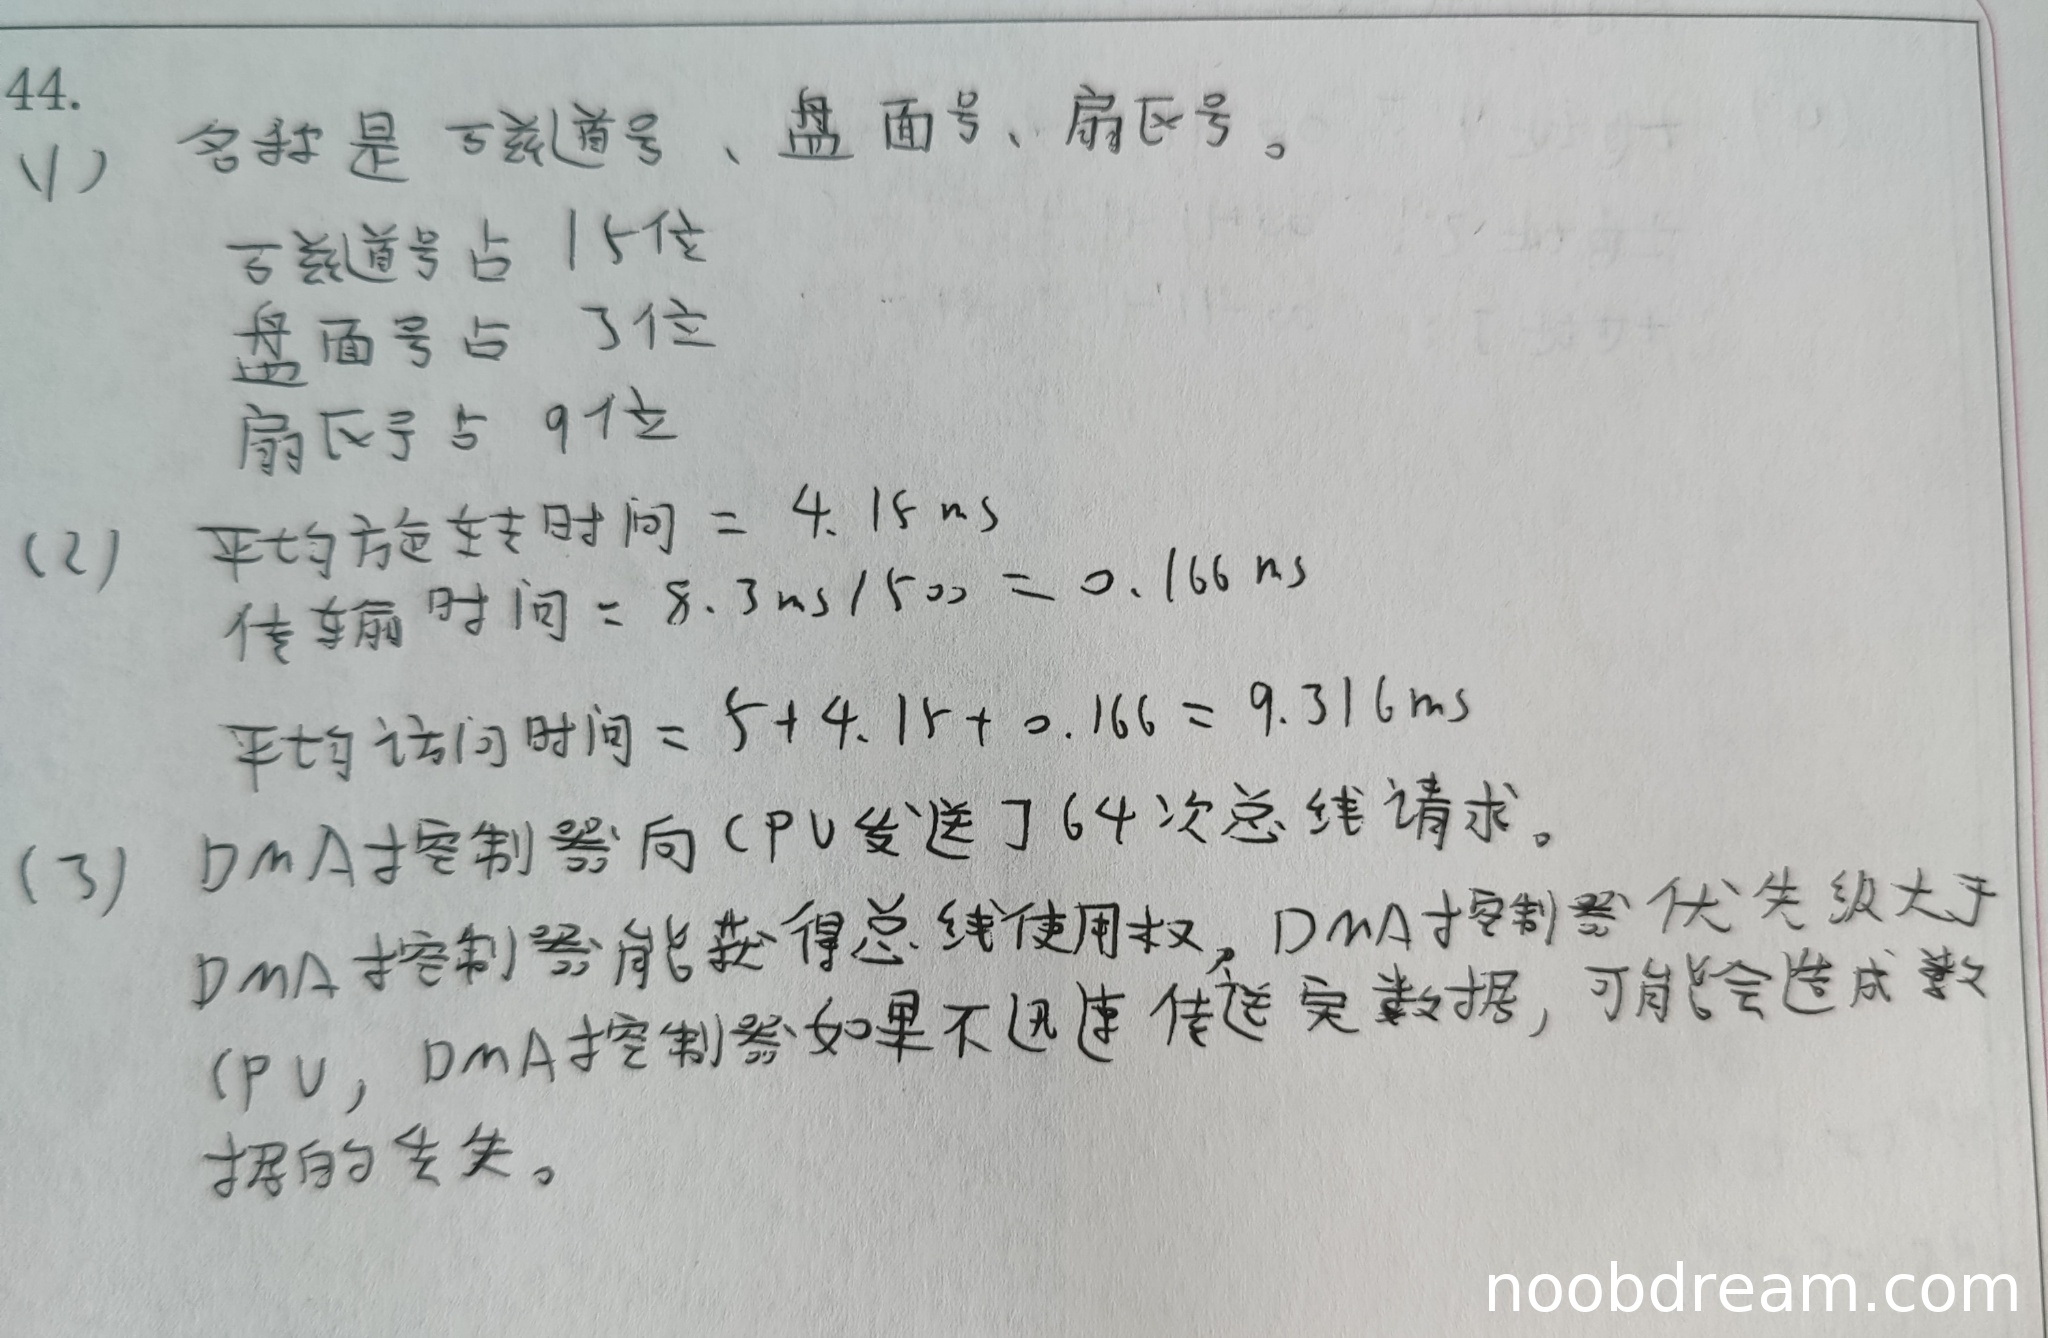 44.
(1) 名称是 磁道号、盘面号、扇区号。
磁道号占 15位
盘面号占 3位
扇区号占 9位
(2) 平均旋转时间 = 4.15ms
传输时间 = 8.3ms/500 = 0.166ms
平均访问时间 = 5+4.15+0.166 = 9.316ms
(3) DMA控制器向CPU发送了64次总线请求。
DMA控制器能获得总线使用权,DMA控制器优先级大于
CPU,DMA控制器如果不迅速传送完数据,可能会造成数
据的丢失。
noobdream.com